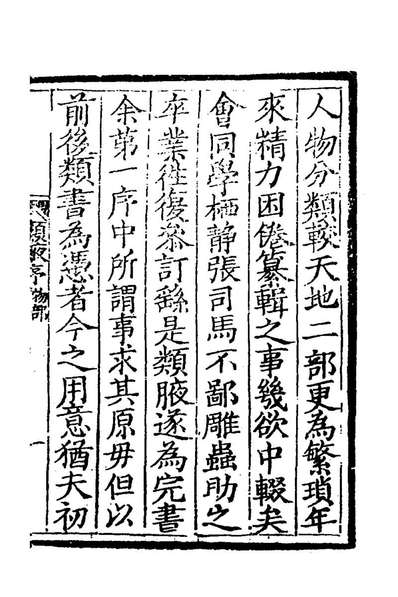 人物分類較天地二部更為繁瑣年
來精力困倦纂輯之事幾欲中輟矣
會同學栖靜張司馬不鄙雕蟲助之
卒業往復叅訂繇是類腋遂為完書
余第一序中所謂事求其原毋但以
前後類書為憑者今之用意猶夫初
類腋序物部
一